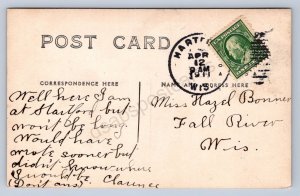 POST CARD
CORRESPONDENCE HERE
NAME AND ADDRESS HERE
HARTF
APR
12
AM
WIS.
Well here I am
at Hartford but
won't be long
Would have
wrote sooner but
didn't know where
I would be.
Don't ans. Clarence
Miss Hazel Bonner
Fall River
Wis.